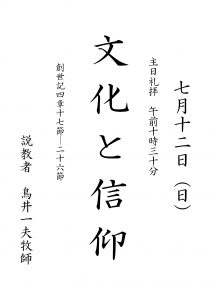 七月十二日（日）
主日礼拝　午前十時三十分
文化と信仰
創世記四章十七節―二十六節
説教者　鳥井一夫牧師